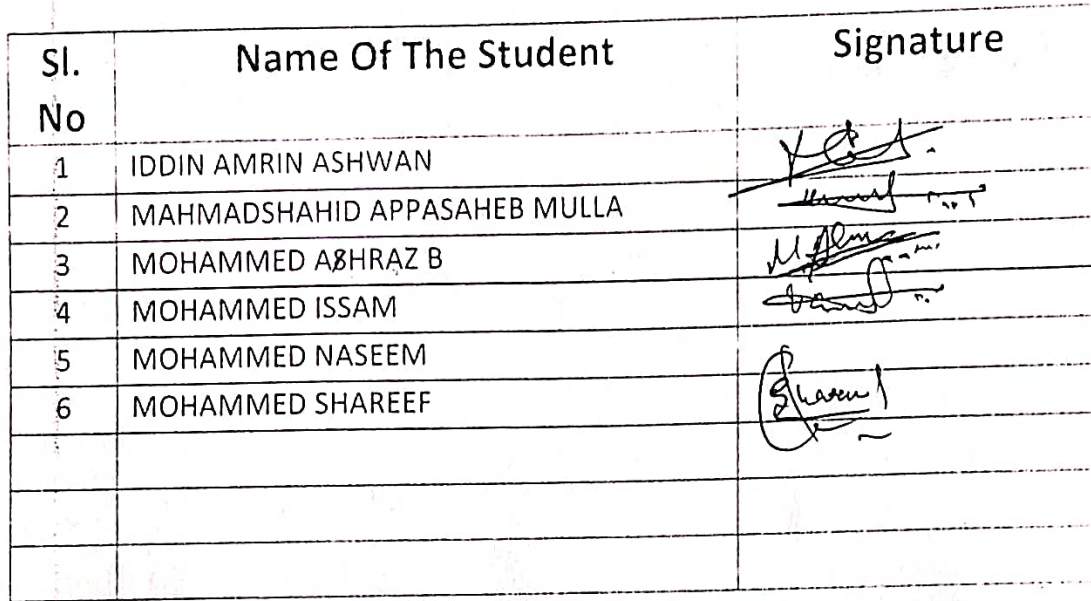 Sl. No Name Of The Student Signature
1 IDDIN AMRIN ASHWAN
2 MAHMADSHAHID APPASAHEB MULLA
3 MOHAMMED ASHRAZ B
4 MOHAMMED ISSAM
5 MOHAMMED NASEEM
6 MOHAMMED SHAREEF